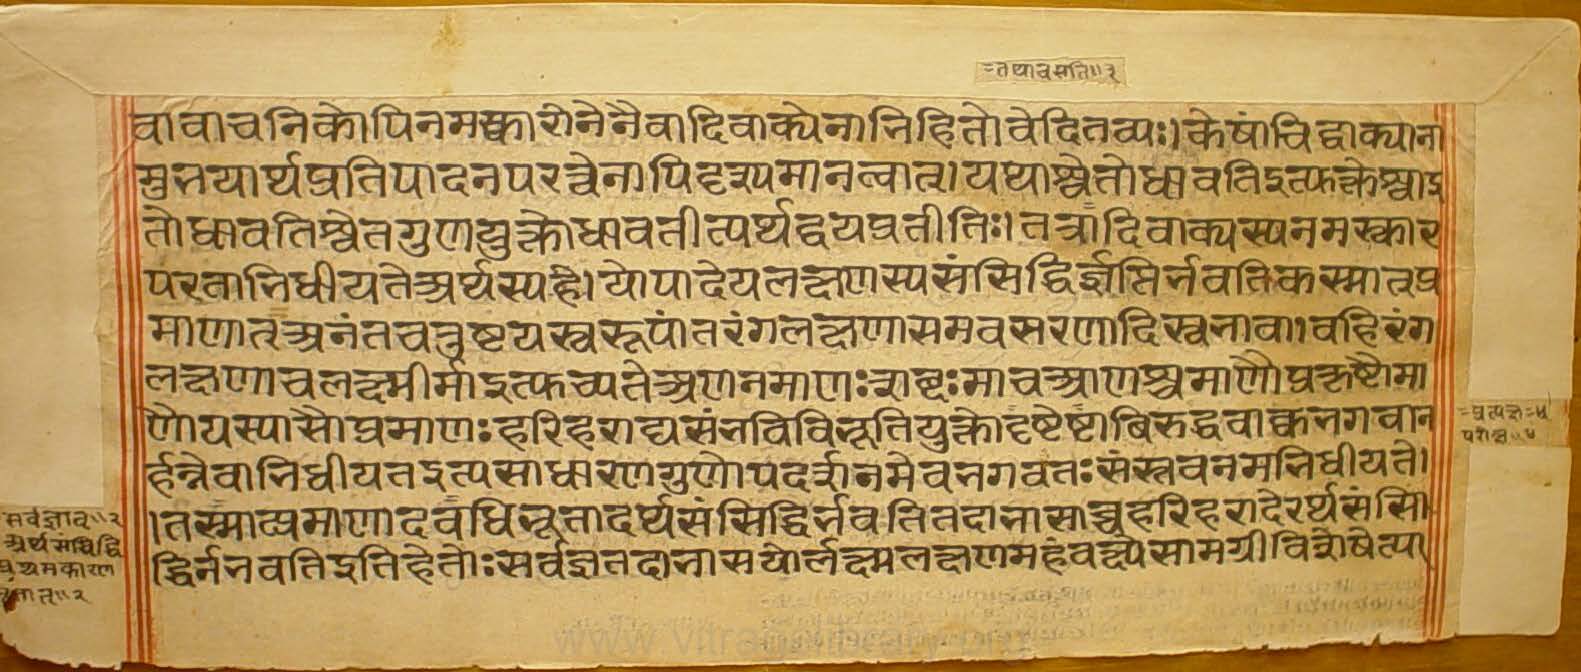 =तथावसति॥१
वावाचनिकोपिनमस्कारोनेनैवादिवाक्येनाभिहितोवेदितव्यः।केषांचिद्वाक्याना
मुभयार्थप्रतिपादनपरत्वेनापिदृश्यमानत्वात्।यथाश्वेतोधावतिइत्युक्तेश्वाइ
तोधावतिश्वेतगुणयुक्तोधावतीत्यर्थद्वयप्रतीतिः।तत्रादिवाक्यस्यनमस्कार
परताभिधीयतेअर्थस्यहे।योपादेयलक्षणस्यसंसिद्धिर्ज्ञप्तिर्भवतिकस्मात्प्र
माणात्अनंतचतुष्टयस्वरूपांतरंगलक्षणासमवसरणादिस्वभावा।वहिरंग
लक्षणाचलक्ष्मीर्माइत्युच्यतेअणनमाणःशब्दःमाचआणश्चमाणौप्रकृष्टौमा
णौयस्यासौप्रमाणःहरिहराद्यसंभविविभूतियुक्तोदृष्टेष्टाबिरुद्धवाक्चभगवान
र्हन्नेवाभिधीयतइत्यसाधारणगुणोपदर्शनमेवभगवतःसंस्तवनमभिधीयते।
।तस्मात्प्रमाणादवधिभूतादर्थसंसिद्धिर्भवतितदाभासाच्चहरिहरादेरर्थसंसि
द्धिर्नभवतिइतिहेतोःसर्वज्ञतदाभासयोर्लक्ष्मलक्षणमहंवक्ष्येसामग्रीविशेषेत्या
=प्रत्यक्ष=४
परोक्ष॥४
सर्वज्ञात्॥२
अर्थसंसिद्धि
प्रथमकारण
भूतात्॥२
www.vitragelibrary.org